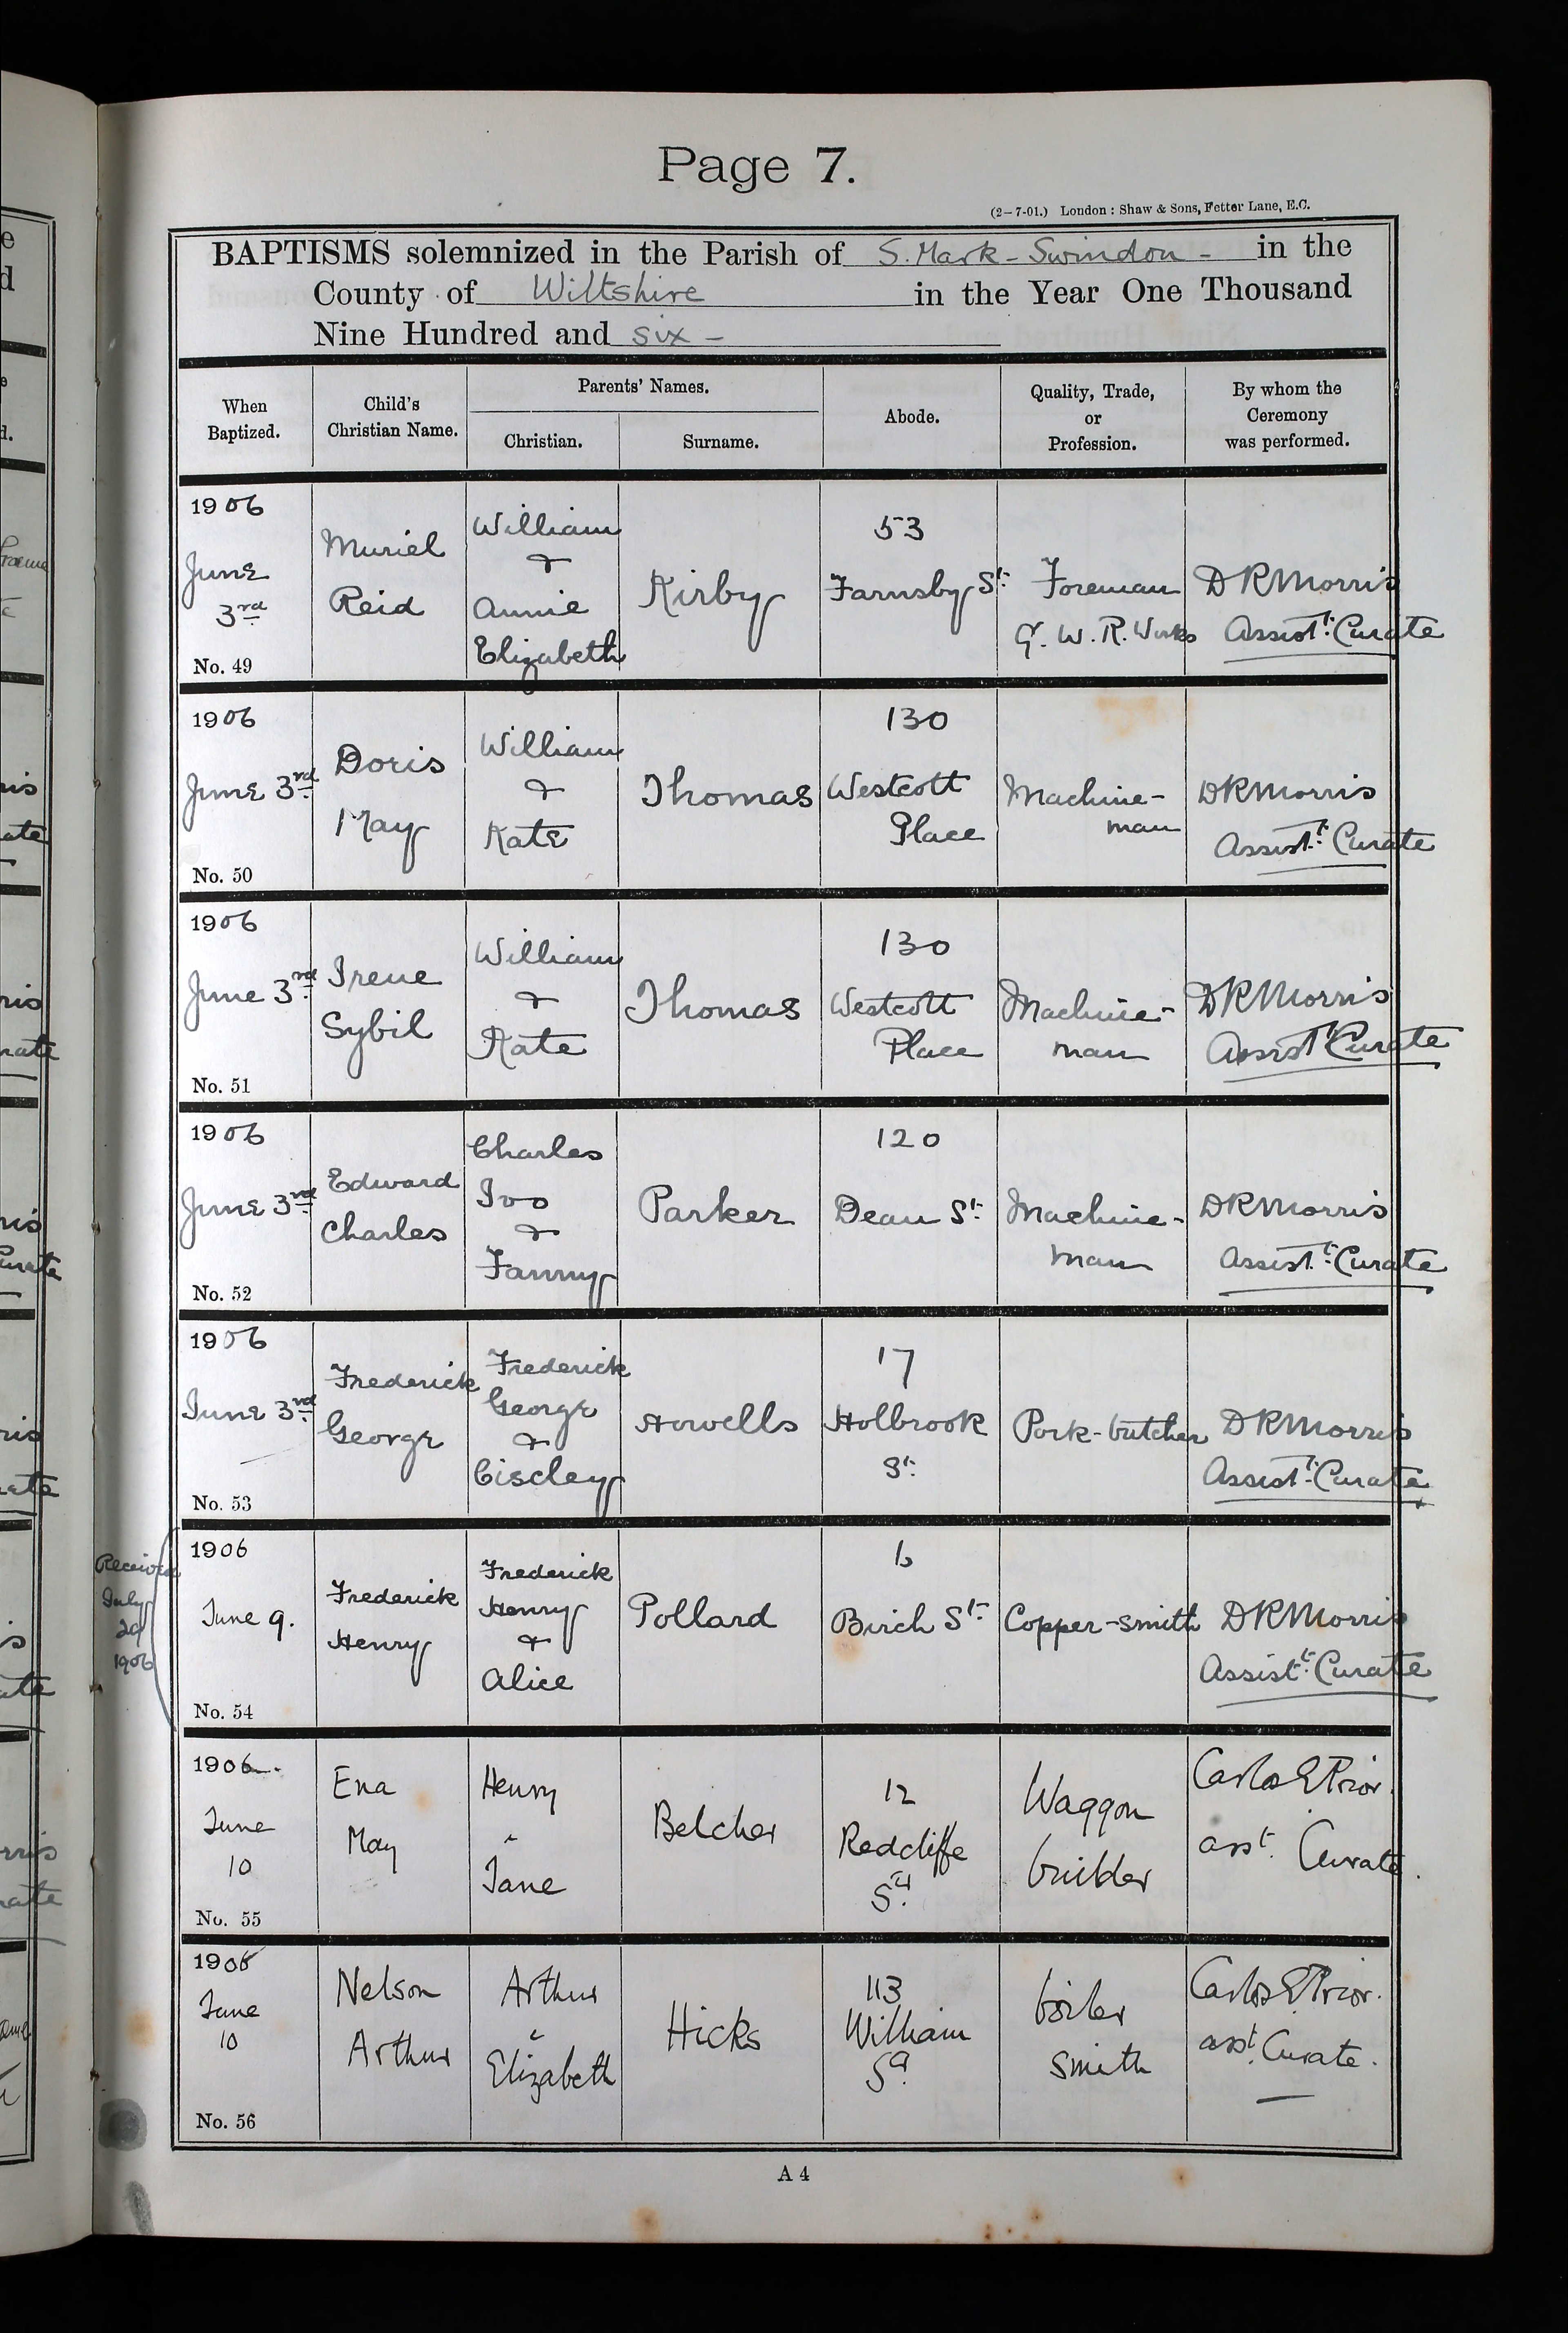 Page 7.
(2–7-01.) London : Shaw & Sons, Fetter Lane, E.C.
BAPTISMS solemnized in the Parish of S. Mark - Swindon - in the
County of Wiltshire in the Year One Thousand
Nine Hundred and six -
When Baptized.
Child's Christian Name.
Parents' Names.
Christian.
Surname.
Abode.
Quality, Trade, or Profession.
By whom the Ceremony was performed.
1906
June
3rd
No. 49
Muriel
Reid
William
&
Annie
Elizabeth
Kirby
53
Farnsby St.
Foreman
G. W. R. Works
DRMorris
Assist. Curate
1906
June 3rd
No. 50
Doris
May
William
&
Kate
Thomas
130
Westcott
Place
Machine-
man
DRMorris
Assist. Curate
1906
June 3rd
No. 51
Irene
Sybil
William
&
Kate
Thomas
130
Westcott
Place
Machine-
man
DRMorris
Assist Curate
1906
June 3rd
No. 52
Edward
Charles
Charles
Ivo
&
Fanny
Parker
120
Dean St.
Machine-
man
DRMorris
Assist. Curate
1906
June 3rd
No. 53
Frederick
George
Frederick
George
&
Ciscley
Howells
17
Holbrook
St.
Pork-butcher
DRMorris
Assist. Curate
Received
July
29
1906
1906
June 9.
No. 54
Frederick
Henry
Frederick
Henry
&
Alice
Pollard
6
Birch St.
Copper-smith
DRMorris
Assist. Curate
1906.
June
10
No. 55
Ena
May
Henry
&
Jane
Belcher
12
Redcliffe
St.
Waggon
builder
Carlos E Prior.
asst. Curate.
1906
June
10
No. 56
Nelson
Arthur
Arthur
&
Elizabeth
Hicks
113
William
St.
boiler
smith
Carlos E Prior.
asst. Curate.
A 4